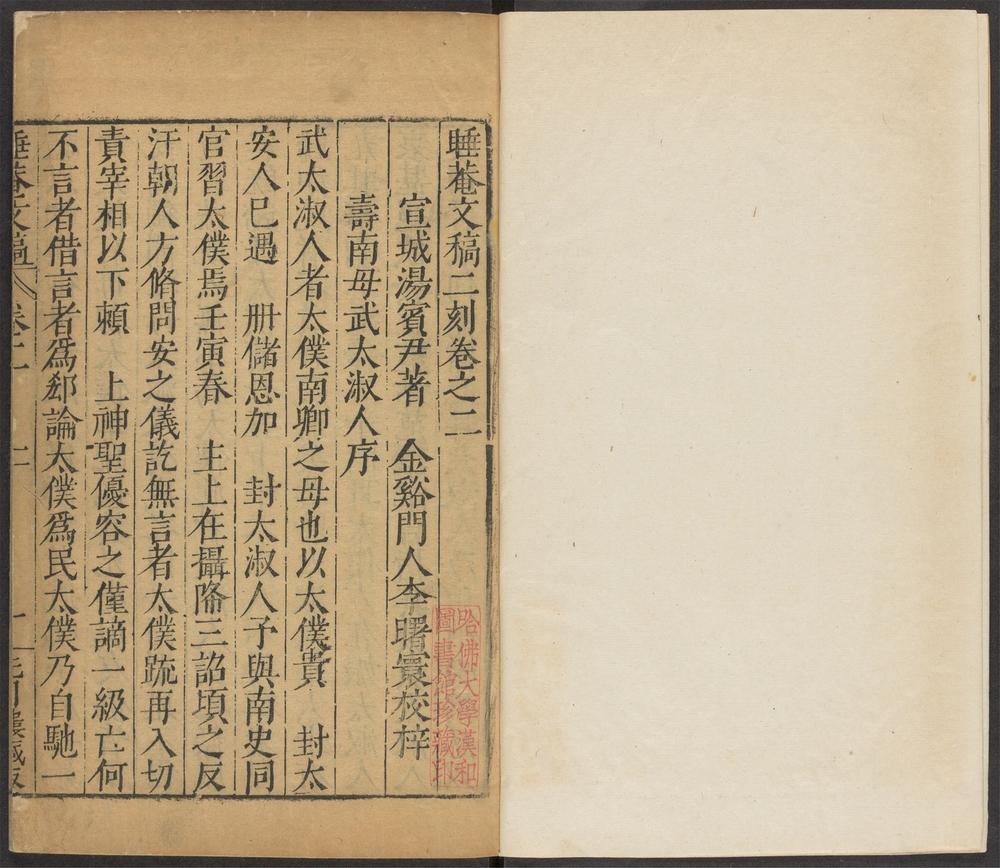 睡菴文稿二刻卷之二
宣城湯賓尹著　金谿門人李曙寰校梓
壽南母武太淑人序
武太淑人者太僕南卿之母也以太僕貴　封太
安人已遇　冊儲恩加　封太淑人予與南史同
官習太僕焉壬寅春　主上在攝降三詔頃之反
汗朝人方脩問安之儀訖無言者太僕䟽再入切
責宰相以下頼　上神聖優容之僅謫一級亡何
不言者借言者爲郄論太僕爲民太僕乃自馳一
睡菴文稿　卷二　一
哈佛大學漢和
圖書館珍藏印